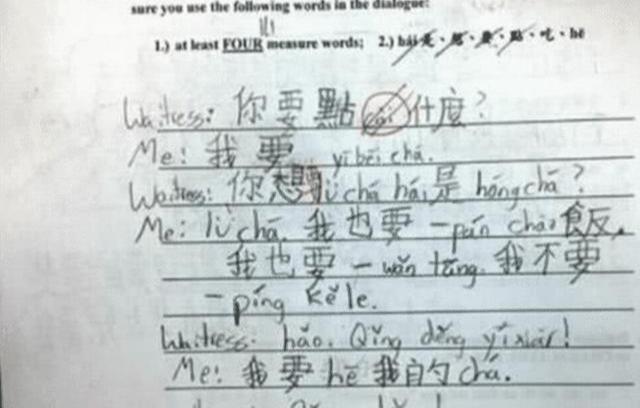 sure you use the following words in the dialogue:
1.) at least FOUR measure words; 2.) hái是、想、要、點、吃、hē
Waitress: 你要點什麼?
Me: 我要 yībēi chá.
Waitress: 你想 lǜchá hái是 hóngchá?
Me: lǜchá. 我也要一pán chǎo飯,
我也要一wǎn tāng. 我不要
一píng kělè.
Waitress: hǎo. Qǐng děng yíxiàr!
Me: 我要 hē 我自勺 chá.